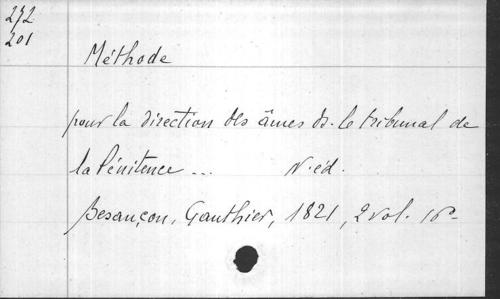 272
201
Méthode
pour la direction des âmes ds. le tribunal de
la Pénitence ... N. éd.
Besançon, Gauthier, 1821, 2 vol. 16°